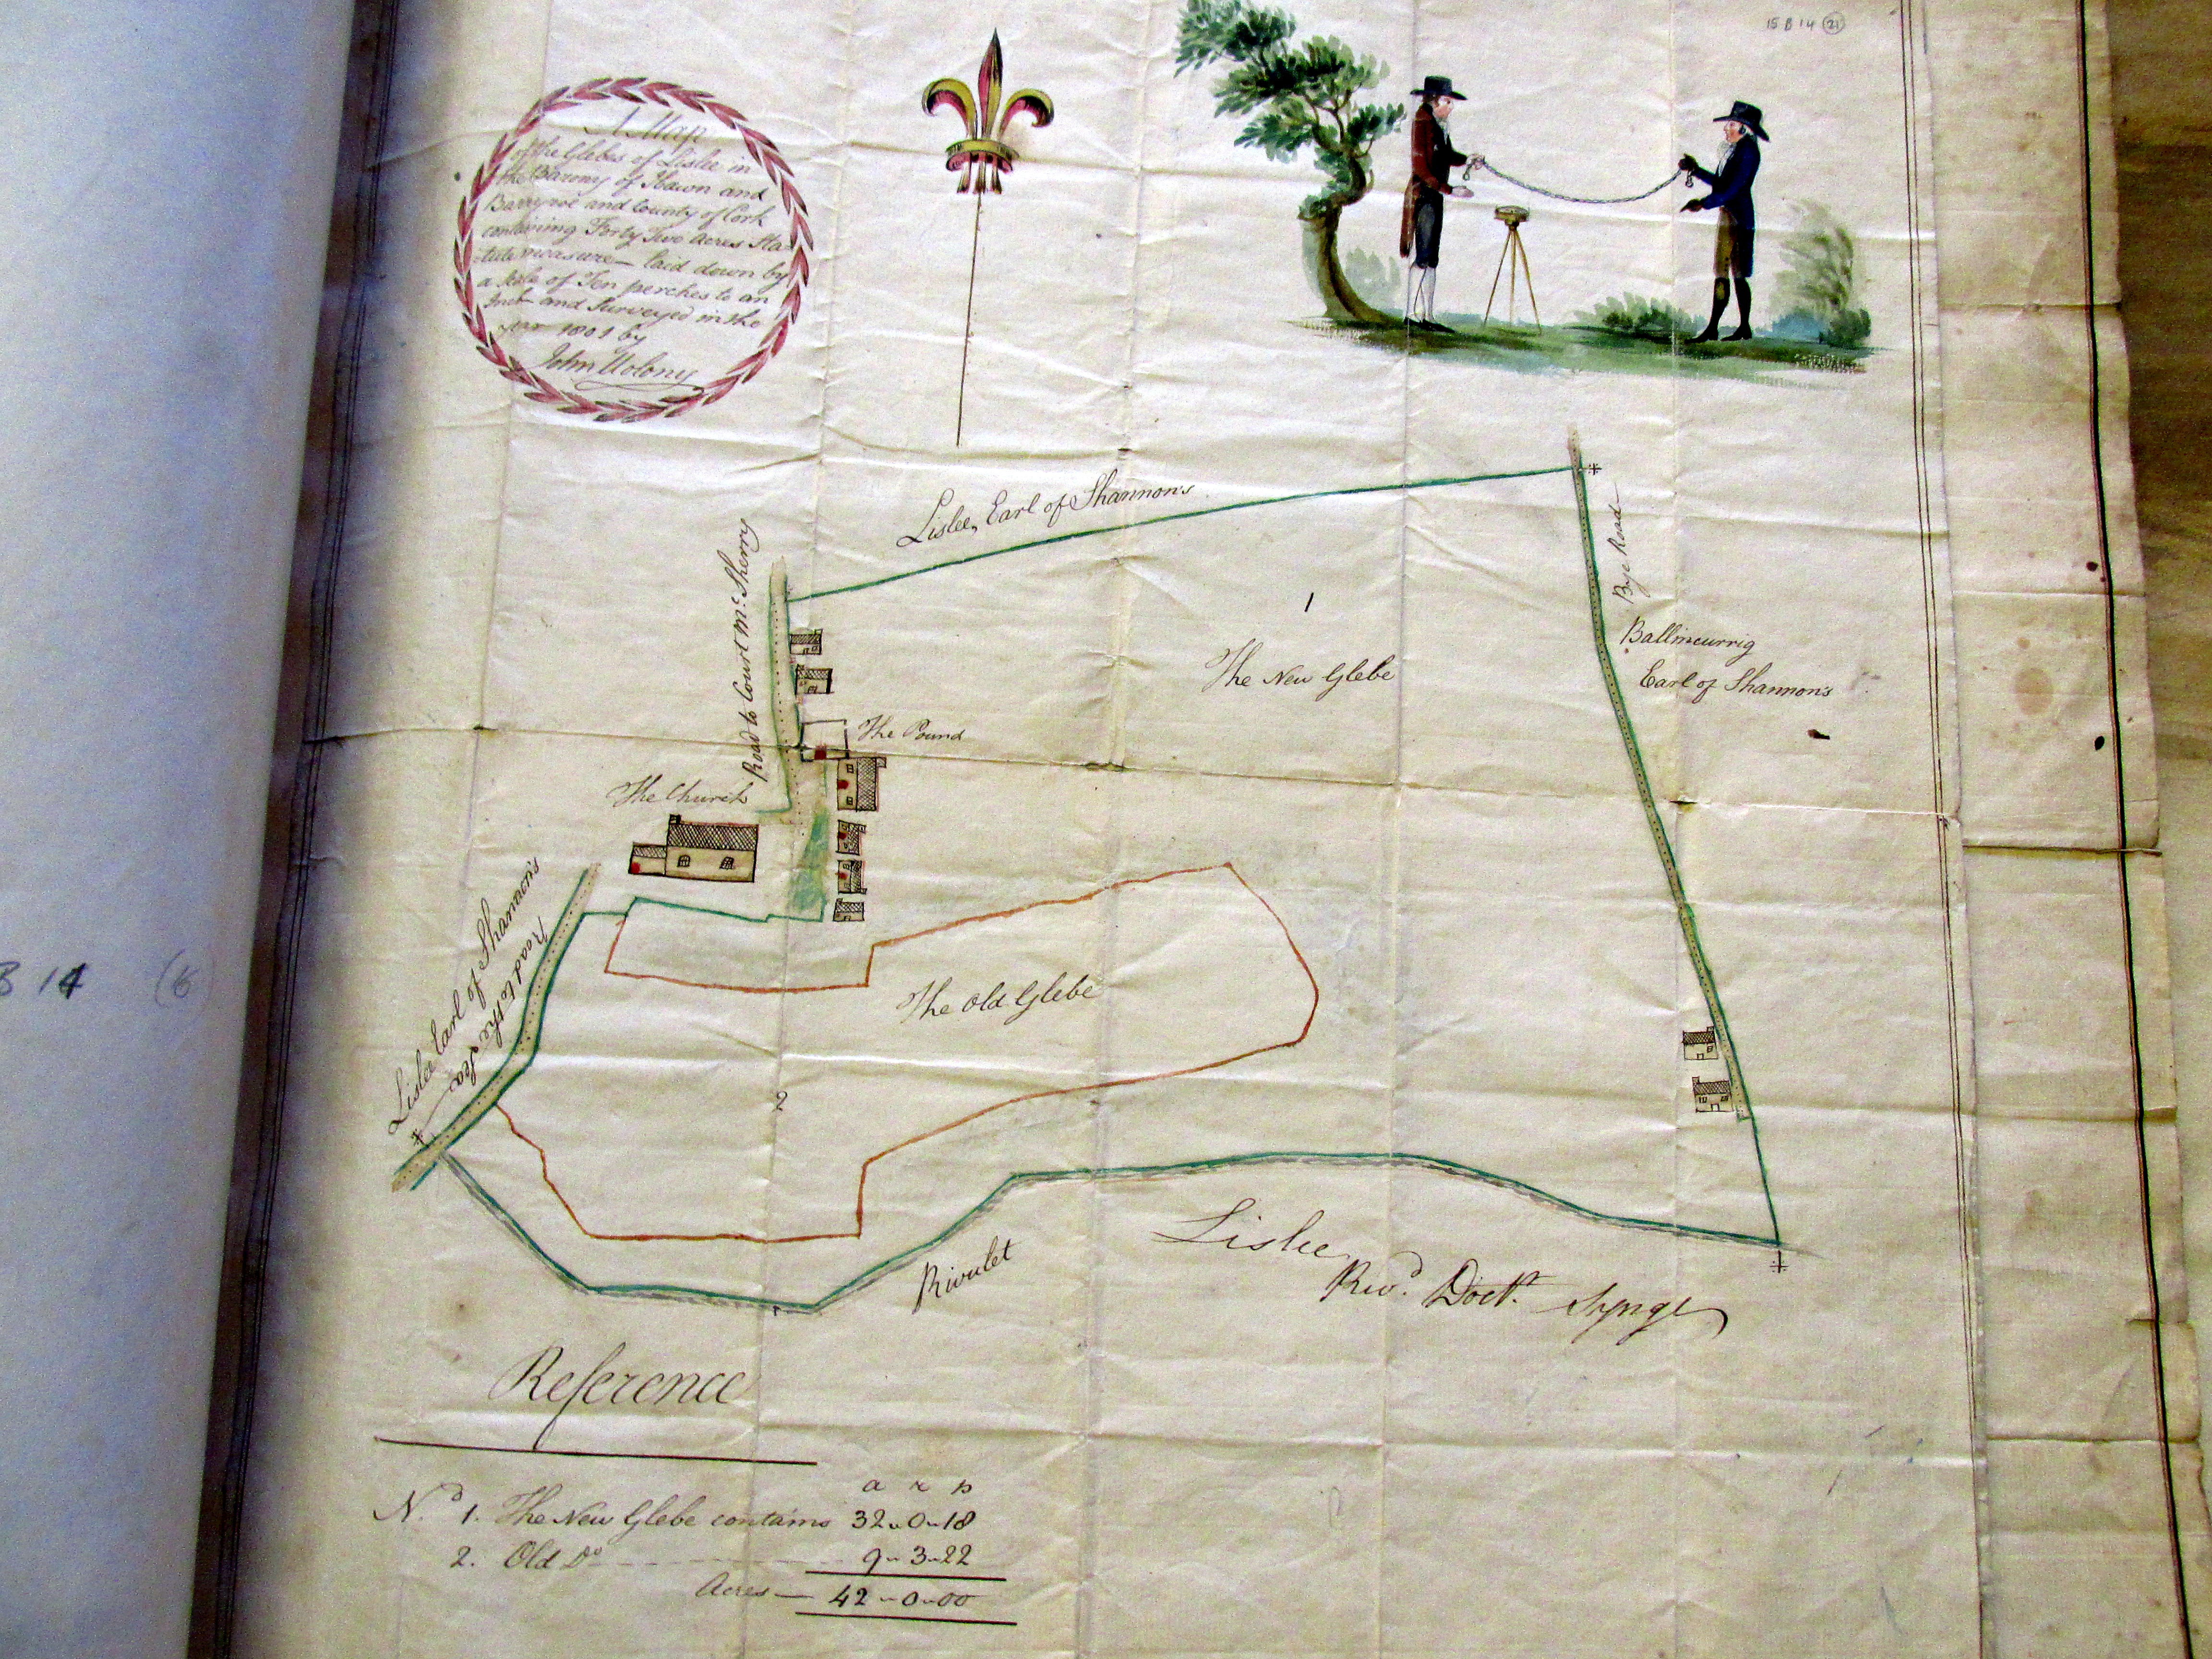 15 B 14 (21)
A Map
of the Glebes of Lislee in
the Barony of Ibawn and
Barryroe and County of Cork
containing Forty Two Acres Sta-
tute measure — laid down by
a Scale of Ten perches to an
Inch and Surveyed in the
year 1801 by
John Molony
Lislee, Earl of Shannon's
Road to Court McSherry
Bye Road
Ballincurrig
Earl of Shannon's
1
The New Glebe
The Pound
The Church
Lislee Earl of Shannon's
Road to the Sea
The Old Glebe
2
B 14 (6
Rivulet
Lislee
Revd. Doctr. Synge
Reference
a r p
No. 1. The New Glebe contains 32 - 0 - 18
2. Old Do - - - - - 9 - 3 - 22
Acres — 42 - 0 - 00